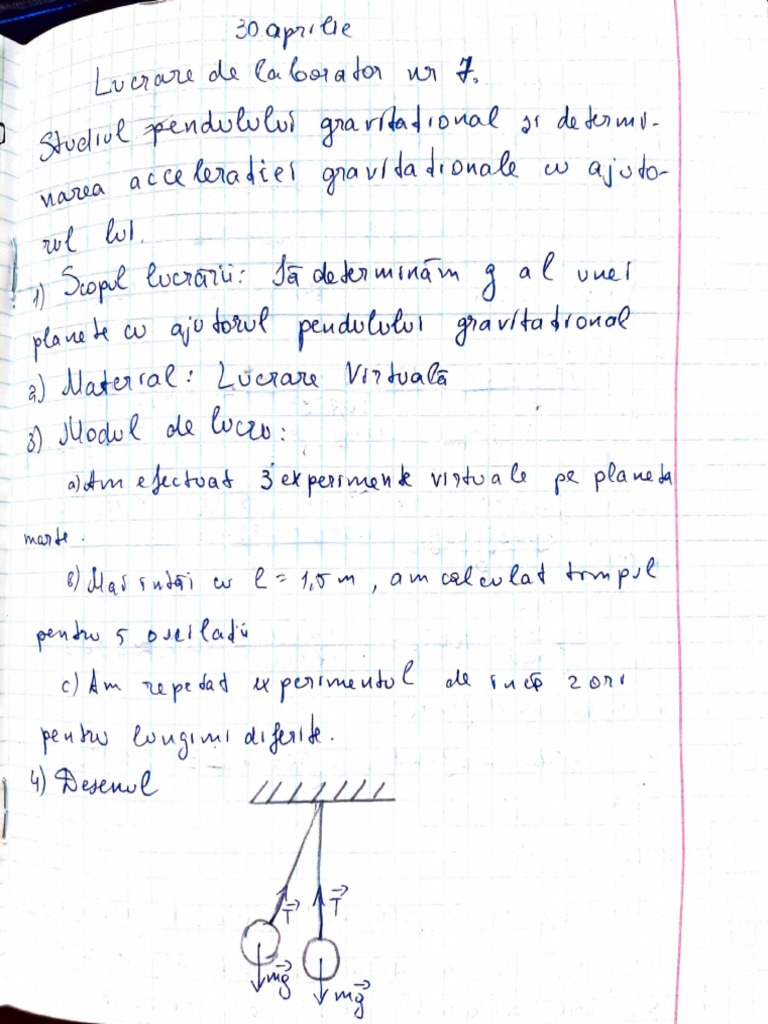 30 aprilie
Lucrare de laborator nr 7.
Studiul pendulului gravitațional și determi-
narea accelerației gravitaționale cu ajuto-
rul lui.
1) Scopul lucrării: Să determinăm g al unei
planete cu ajutorul pendulului gravitațional
2) Material: Lucrare Virtuală
3) Modul de lucru:
a) Am efectuat 3 experimente virtuale pe planeta
marte.
b) Mai întâi cu l = 1,5 m, am calculat timpul
pentru 5 oscilații
c) Am repetat experimentul de încă 2 ori
pentru lungimi diferite.
4) Desenul
T T
mg mg